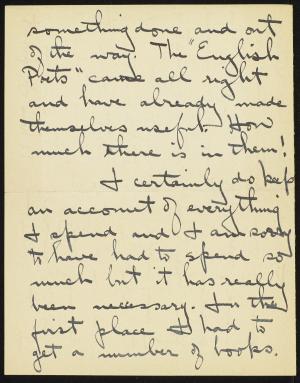 something done and out
of the way. The "English
Poets" came all right
and have already made
themselves useful. How
much there is in them!
I certainly do keep
an account of everything
I spend and I am sorry
to have had to spend so
much but it has really
been necessary. In the
first place I had to
get a number of books.